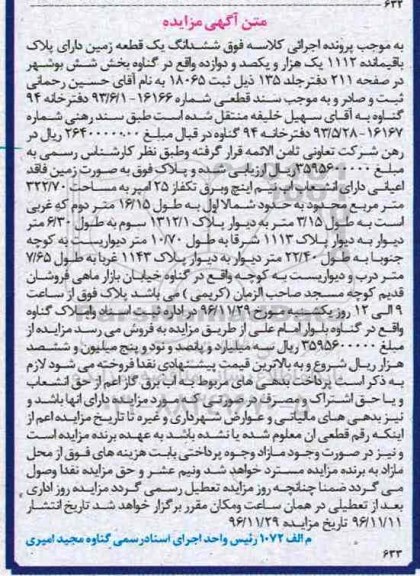 ۶۳۲
متن آگهی مزایده
به موجب پرونده اجرائی کلاسه فوق ششدانگ یک قطعه زمین دارای پلاک
باقیمانده ۱۱۱۲ یک هزار و یکصد و دوازده واقع در گناوه بخش شش بوشهر
در صفحه ۲۱۱ دفتر جلد ۱۳۵ ذیل ثبت ۱۸۰۶۵ به نام آقای حسین رحمانی
ثبت و صادر و به موجب سند قطعی شماره ۱۶۱۶۶-۹۳/۶/۱ دفترخانه ۹۴
گناوه به آقای سهیل خلیفه منتقل شده است طبق سند رهنی شماره
۱۶۱۶۷-۹۳/۵/۲۸ دفترخانه ۹۴ گناوه در قبال مبلغ ۲۶۴۰۰۰۰۰۰۰ ریال در
رهن شرکت تعاونی ثامن الائمه قرار گرفته وطبق نظر کارشناس رسمی به
مبلغ ۳۵۹۵۶۰۰۰۰۰ ریال ارزیابی شده و پلاک فوق به صورت زمین فاقد
اعیانی دارای انشعاب اب نیم اینچ وبرق تکفاز ۲۵ امپر به مساحت ۳۲۲/۷۰
متر مربع محدود به حدود شمالا اول به طول ۱۶/۱۵ متر دوم که غربی
است به طول ۳/۱۵ متر به دیوار پلاک ۱۳۱۲/۱ سوم به طول ۶/۳۰ متر
دیوار به دیوار پلاک ۱۱۱۳ شرقا به طول ۱۰/۷۰ متر دیواریست به کوچه
جنوبا به طول ۲۲/۴۰ متر دیوار به دیوار پلاک ۱۱۴۳ غربا به طول ۷/۶۵
متر درب و دیواریست به کوچه واقع در گناوه خیابان بازار ماهی فروشان
قدیم کوچه مسجد صاحب الزمان (کریمی) می باشد پلاک فوق از ساعت
۹ الی ۱۲ روز یکشنبه مورخ ۹۶/۱۱/۲۹ در اداره ثبت اسناد واملاک گناوه
واقع در گناوه بلوار امام علی از طریق مزایده به فروش می رسد مزایده از
مبلغ ۳۵۹۵۶۰۰۰۰۰ ریال سه میلیارد و پانصد و نود و پنج میلیون و ششصد
هزار ریال شروع و به بالاترین قیمت پیشنهادی نقدا فروخته می شود لازم
به ذکر است پرداخت بدهی های مربوط به آب برق گاز اعم از حق انشعاب
و یا حق اشتراک و مصرف در صورتی که مورد مزایده دارای انها باشد و
نیز بدهی های مالیاتی و عوارض شهرداری و غیره تا تاریخ مزایده اعم از
اینکه رقم قطعی ان معلوم شده یا نشده باشد به عهده برنده مزایده است
و نیز در صورت وجود مازاد وجوه پرداختی بابت هزینه های فوق از محل
مازاد به برنده مزایده مسترد خواهد شد ونیم عشر و حق مزایده نقدا وصول
می گردد ضمنا چنانچه روز مزایده تعطیل رسمی گردد مزایده روز اداری
بعد از تعطیلی در همان ساعت ومکان مقرر برگزار خواهد شد تاریخ انتشار
۹۶/۱۱/۱۱ تاریخ مزایده ۹۶/۱۱/۲۹
م الف ۱۰۷۲ رئیس واحد اجرای اسناد رسمی گناوه مجید امیری
۶۳۳